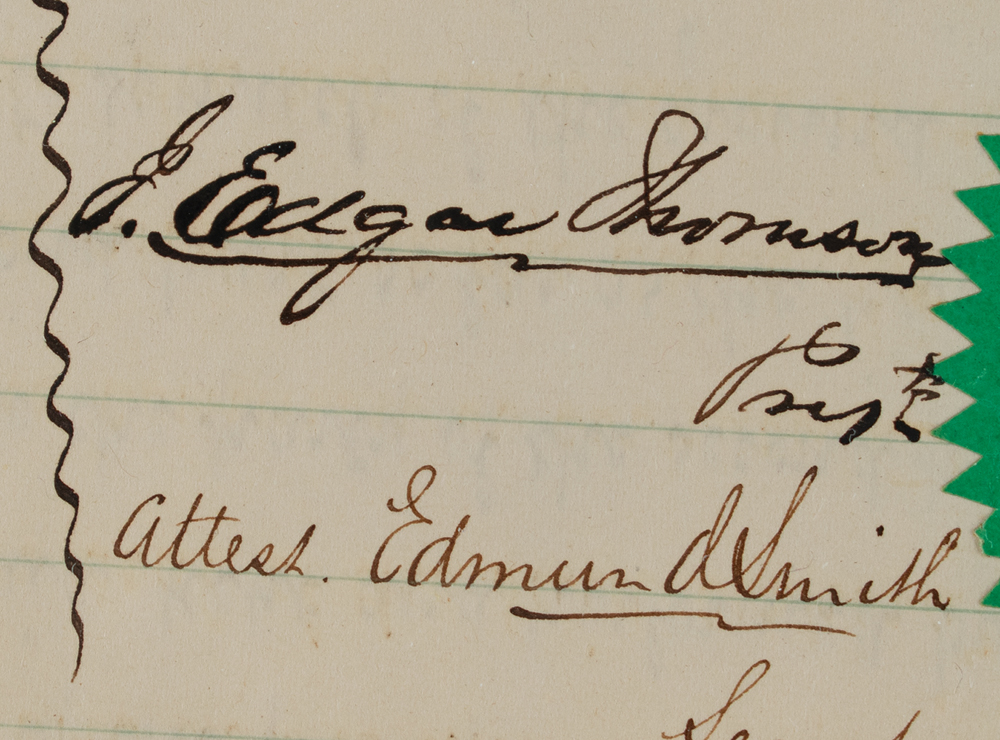 J. Edgar Thomson
Prest
Attest. Edmund Smith